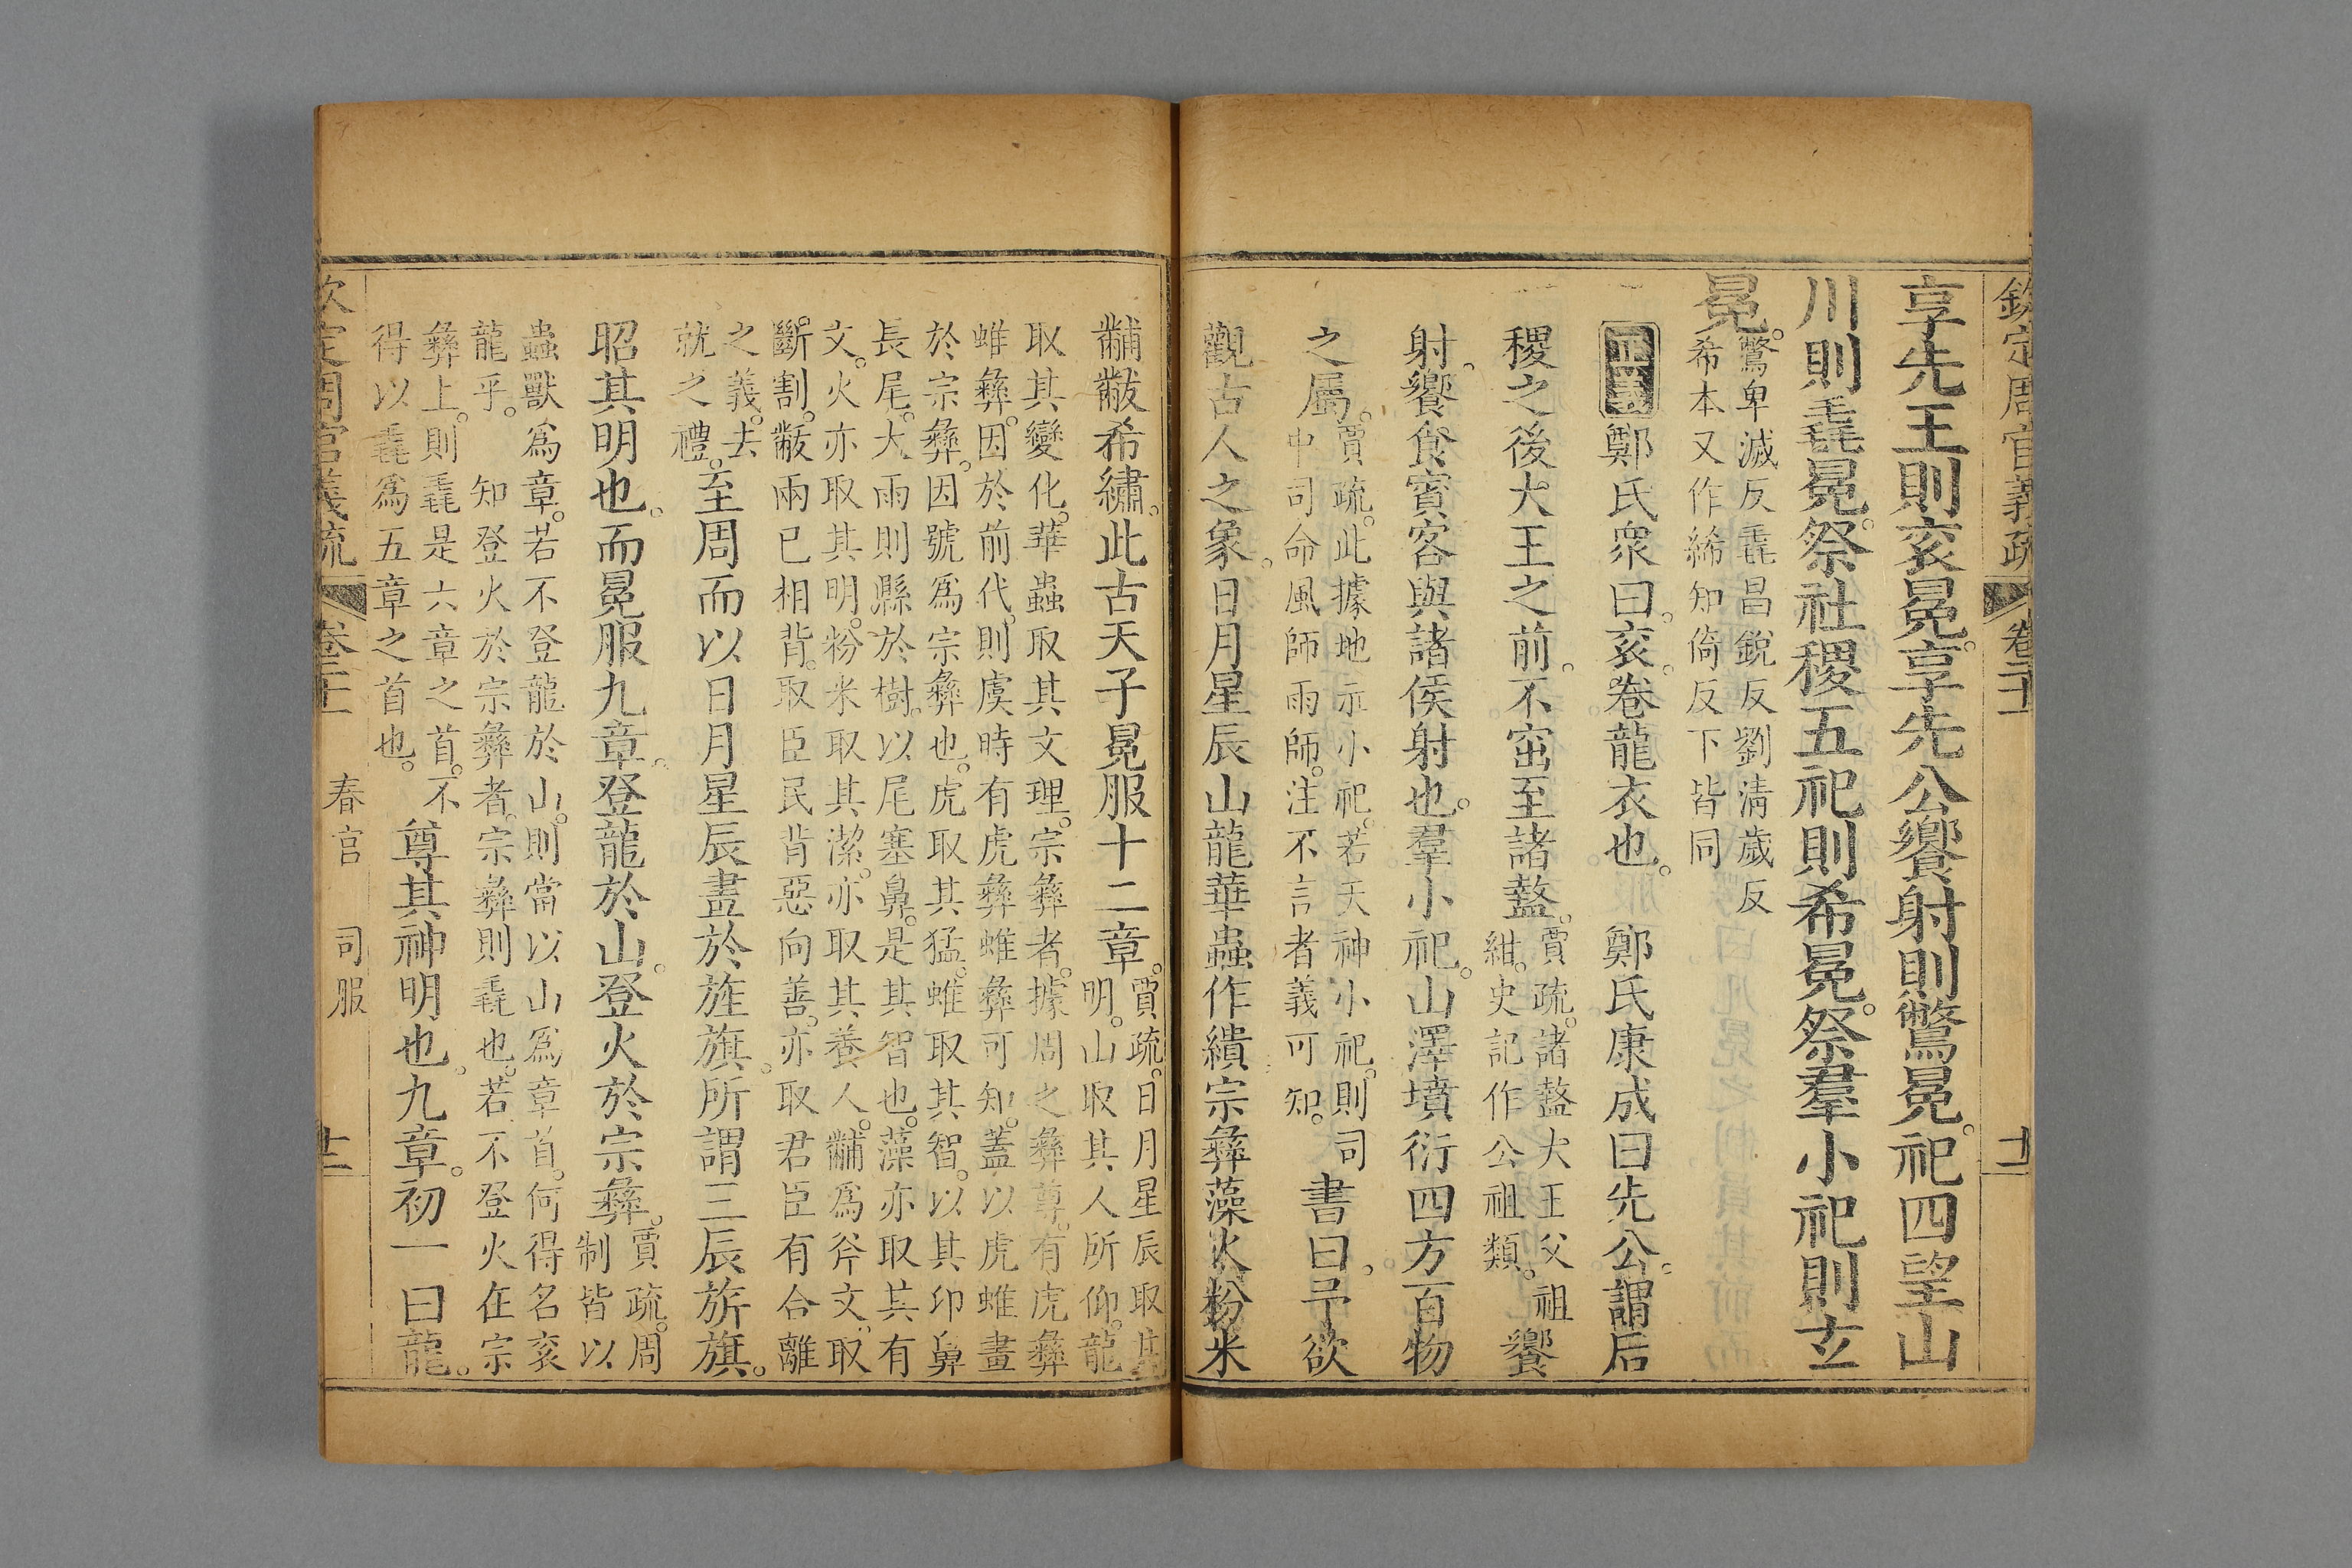 欽定周官義疏 卷二十一 十二
享先王則衮冕。享先公饗射則鷩冕。祀四望山
川則毳冕。祭社稷五祀則希冕。祭羣小祀則𤣥
冕。鷩卑滅反毳昌銳反劉清歲反
希本又作絺知倚反下皆同
正義鄭氏衆曰。衮。卷龍衣也。 鄭氏康成曰先公。謂后
稷之後大王之前。不窋至諸盩。賈疏。諸盩大王父祖
紺。史記作公祖類。饗
射。饗食賓客與諸侯射也。羣小祀。山澤墳衍四方百物
之屬。賈疏。此據地示小祀。若天神小祀。則司
中司命風師雨師。注不言者義可知。書曰。予欲
觀古人之象。日月星辰山龍華蟲作繢宗彝藻火粉米
黼黻希繡。此古天子冕服十二章。賈疏。日月星辰取其
明。山取其人所仰。龍
取其變化。華蟲取其文理。宗彝者。據周之彝尊。有虎彝
蜼彝。因於前代。則虞時有虎彝蜼彝可知。蓋以虎蜼畫
於宗彝。因號爲宗彝也。虎取其猛。蜼取其智。以其卬鼻
長尾。大雨則縣於樹。以尾塞鼻。是其智也。藻亦取其有
文。火亦取其明。粉米取其潔。亦取其養人。黼爲斧文。取
斷割。黻兩已相背。取臣民背惡向善。亦取君臣有合離
之義。去
就之禮。至周而以日月星辰畫於旌旗。所謂三辰旂旗。
昭其明也。而冕服九章。登龍於山。登火於宗彝。賈疏。周
制皆以
蟲獸爲章。若不登龍於山。則當以山爲章首。何得名衮
龍乎。 知登火於宗彝者。宗彝則毳也。若不登火在宗
彝上。則毳是六章之首。不
得以毳爲五章之首也。尊其神明也。九章。初一曰龍。
欽定周官義疏 卷二十一 春官 司服 十二